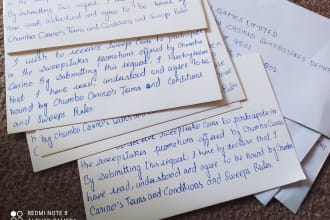 By submitting this request, I
have read, understood and agree to be bound by
Chumba Casino's Terms and Conditions and Sweeps Rules
I wish to receive sweeps coins to participate
in the sweepstakes promotions offered by Chumba
Casino. By submitting this request, I hereby declare
that I have read, understood and agree to be
bound by Chumba Casino's Terms and Conditions
and Sweeps Rules
GAMES LIMITED
CASINO SWEEPSTAKES DEPAR
by Chumba Casino's
receive sweepstakes coins to participate in
the sweepstakes promotions offered by Chumba Casino
By submitting this request, I hereby declare that I
have read, understood and agree to be bound by Chumba
Casino's Terms and Conditions and Sweeps Rules
REDMI NOTE 8
AI QUAD CAMERA